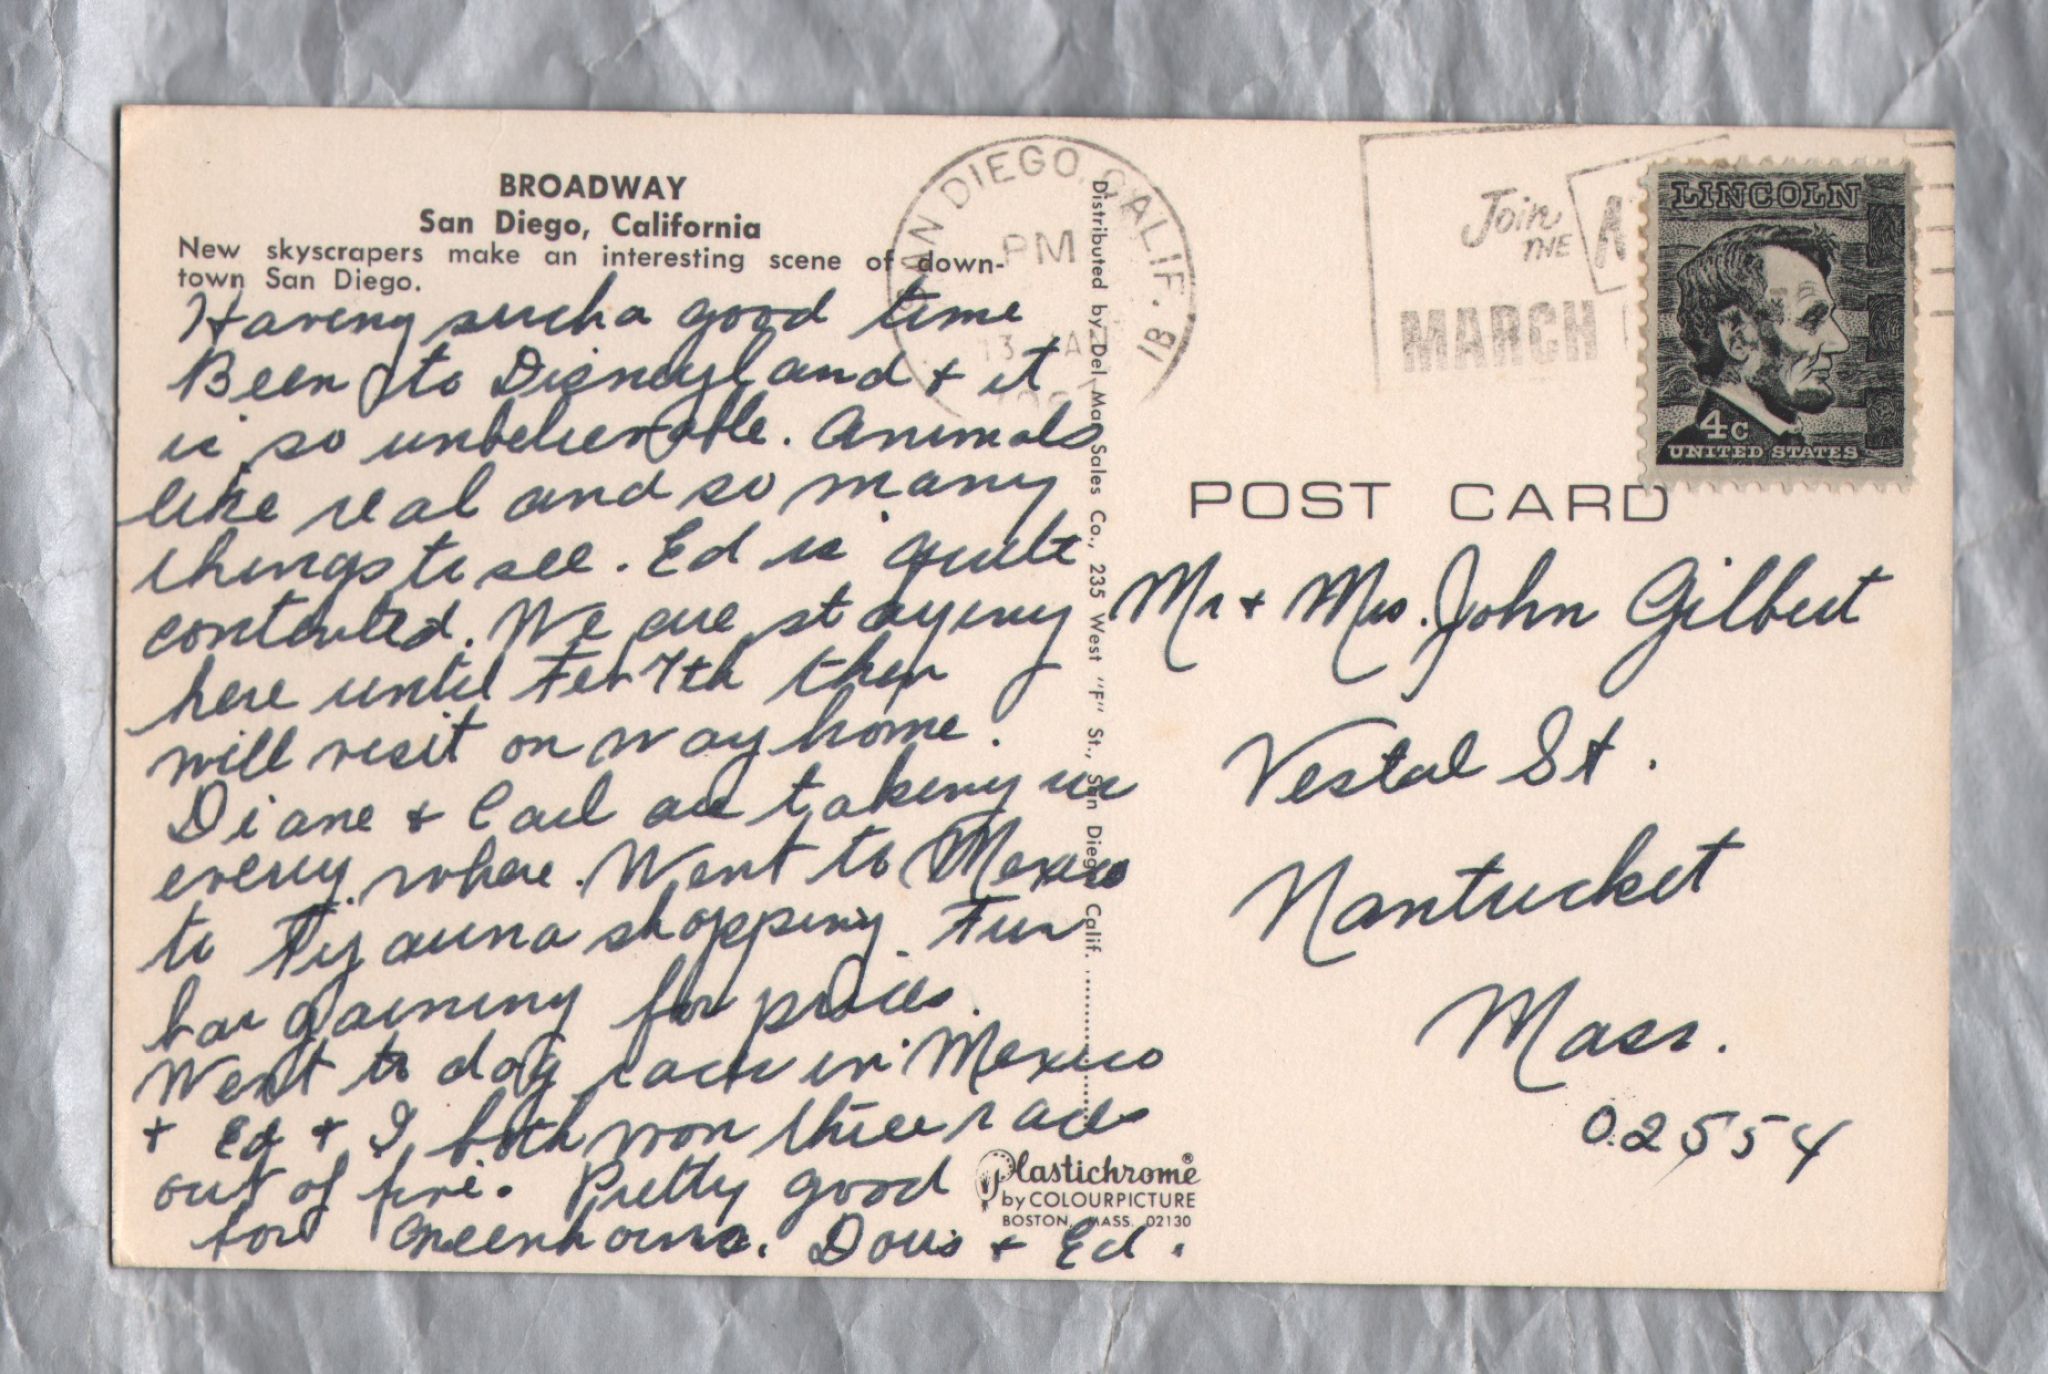 BROADWAY
San Diego, California
New skyscrapers make an interesting scene of down-
town San Diego.
Having such a good time
Been to Disneyland & it
is so unbelievable. Animals
like real and so many
things to see. Ed is quite
contented. We are staying
here until Feb 7th then
will visit on way home.
Diane & Carl are taking us
every where. Went to Mexico
to Tyjauna shopping. Fun
bargaining for prices.
Went to dog races in Mexico
& Ed & I both won three races
out of five. Pretty good
for Greenhorns. Doris & Ed.
Distributed by Del Mar Sales Co., 235 West "F" St., San Diego, Calif.
Plastichrome®
by COLOURPICTURE
BOSTON, MASS. 02130
SAN DIEGO, CALIF. 18
PM
13
Join
THE
MARCH
LINCOLN
4c
UNITED STATES
POST CARD
Mr & Mrs. John Gilbert
Vestal St.
Nantucket
Mass.
02554